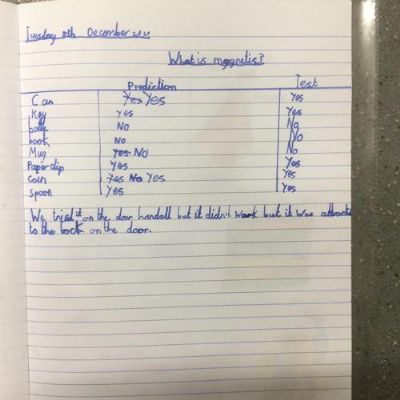 Tuesday 8th December 2020
What is magnetis?
Prediction Test
Can Yes Yes Yes
Key Yes Yes
No No
book No No
Mug Yes No No
Paper clip Yes Yes
Coin Yes No Yes Yes
Spoon Yes Yes
We tried it on the door handall but it didn't work but it was attracte
to the lock on the door.